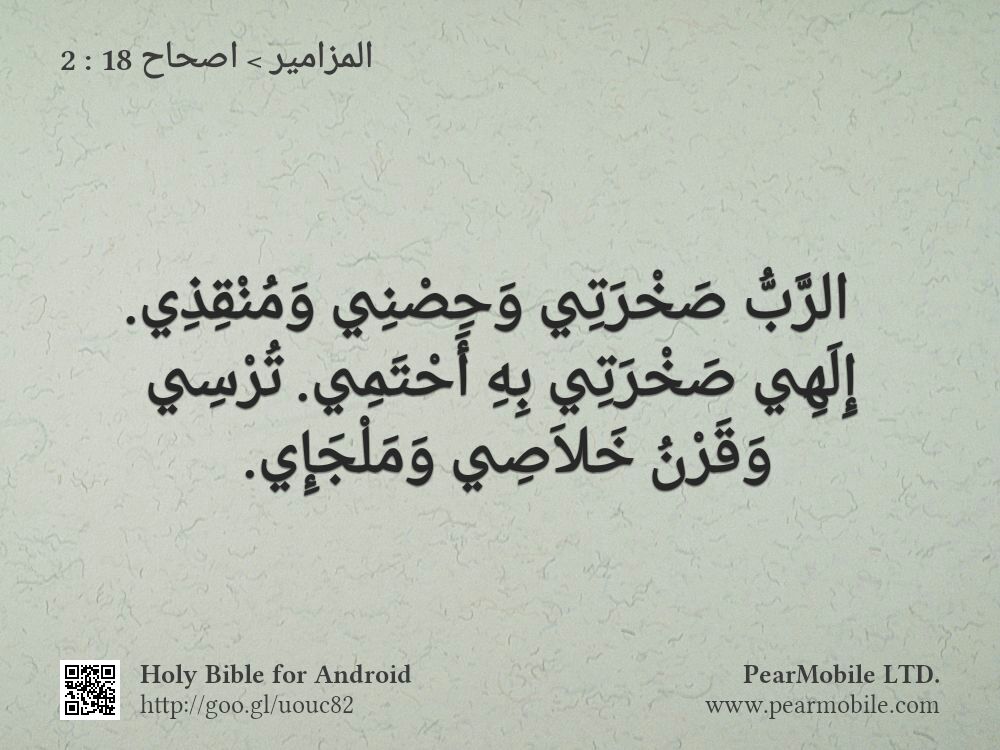 المزامير > اصحاح 18 : 2
الرَّبُّ صَخْرَتِي وَحِصْنِي وَمُنْقِذِي.
إِلَهِي صَخْرَتِي بِهِ أَحْتَمِي. تُرْسِي
وَقَرْنُ خَلاَصِي وَمَلْجَإِي.
Holy Bible for Android
http://goo.gl/uouc82
PearMobile LTD.
www.pearmobile.com